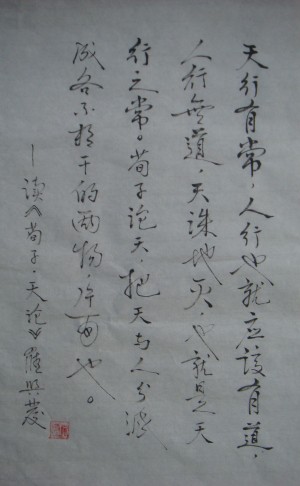 天行有常，人行也就应该有道，
人行無道，天诛地灭，也就是天
行之常。荀子论天，把天与人分
成各不相干的两物，片面也。
—读《荀子·天论》